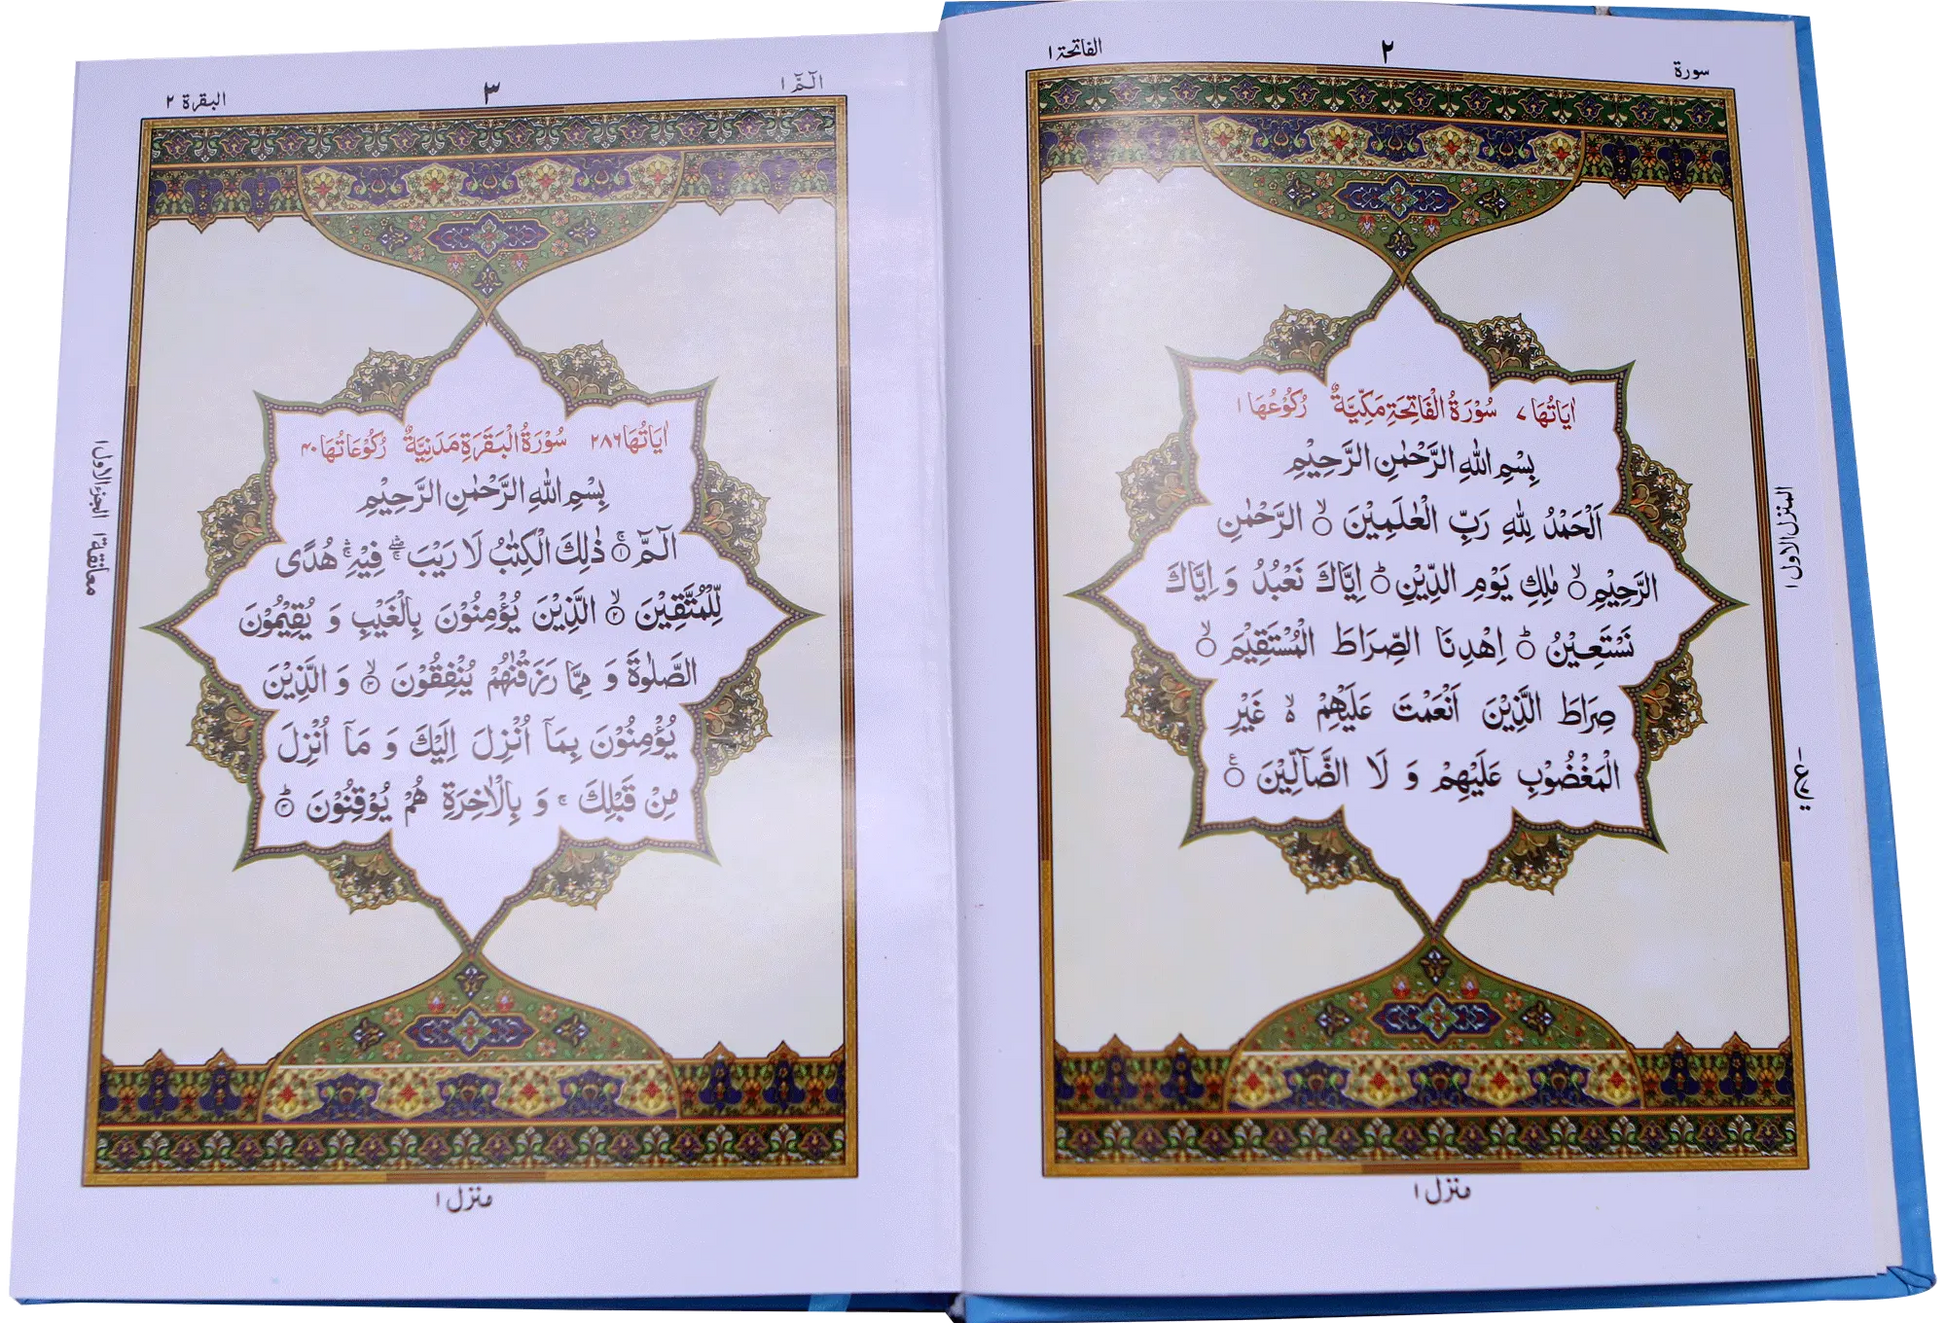 سورة
٢
الفاتحة ١
اٰيَاتُهَا ٧ سُوْرَةُ الْفَاتِحَةِ مَكِّيَّةٌ رُكُوْعُهَا ١
بِسْمِ اللهِ الرَّحْمٰنِ الرَّحِيْمِ
اَلْحَمْدُ لِلّٰهِ رَبِّ الْعٰلَمِيْنَ ۙ الرَّحْمٰنِ
الرَّحِيْمِ ۙ مٰلِكِ يَوْمِ الدِّيْنِ ؕ اِيَّاكَ نَعْبُدُ وَ اِيَّاكَ
نَسْتَعِيْنُ ؕ اِهْدِنَا الصِّرَاطَ الْمُسْتَقِيْمَ ۙ
صِرَاطَ الَّذِيْنَ اَنْعَمْتَ عَلَيْهِمْ ۙ غَيْرِ
الْمَغْضُوْبِ عَلَيْهِمْ وَ لَا الضَّآلِّيْنَ
المنزل الاول ١
منزل ١
الٓمّٓ ١
٣
البقرة ٢
اٰيَاتُهَا ٢٨٦ سُوْرَةُ الْبَقَرَةِ مَدَنِيَّةٌ رُكُوْعَاتُهَا ٤٠
بِسْمِ اللهِ الرَّحْمٰنِ الرَّحِيْمِ
الٓمّٓ ۚ ١ ذٰلِكَ الْكِتٰبُ لَا رَيْبَ ۛ فِيْهِ ۛ هُدًى
لِّلْمُتَّقِيْنَ ۙ ٢ الَّذِيْنَ يُؤْمِنُوْنَ بِالْغَيْبِ وَ يُقِيْمُوْنَ
الصَّلٰوةَ وَ مِمَّا رَزَقْنٰهُمْ يُنْفِقُوْنَ ۙ ٣ وَ الَّذِيْنَ
يُؤْمِنُوْنَ بِمَاۤ اُنْزِلَ اِلَيْكَ وَ مَاۤ اُنْزِلَ
مِنْ قَبْلِكَ ۚ وَ بِالْاٰخِرَةِ هُمْ يُوْقِنُوْنَ ؕ ٤
معانقة ١ الجزء الاول ١
منزل ١